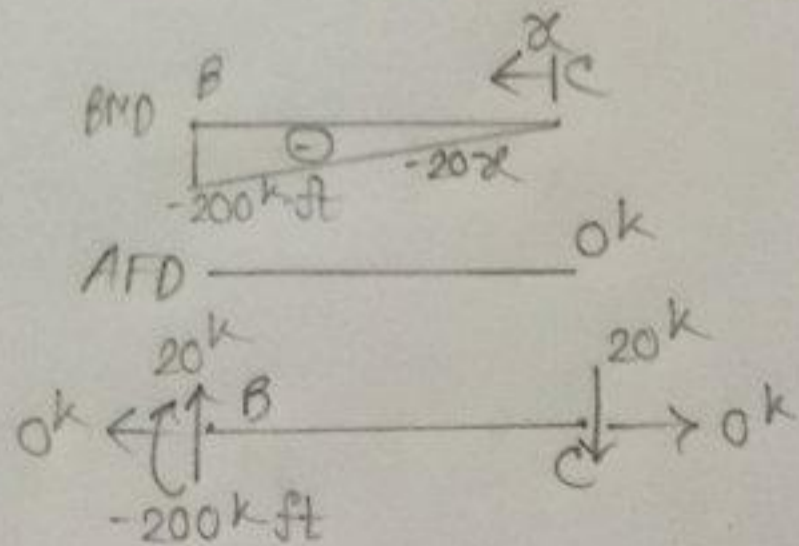 x
BMD B C
-
-20x
-200 k-ft
AFD 0k
20k 20k
0k B C 0k
-200 k ft